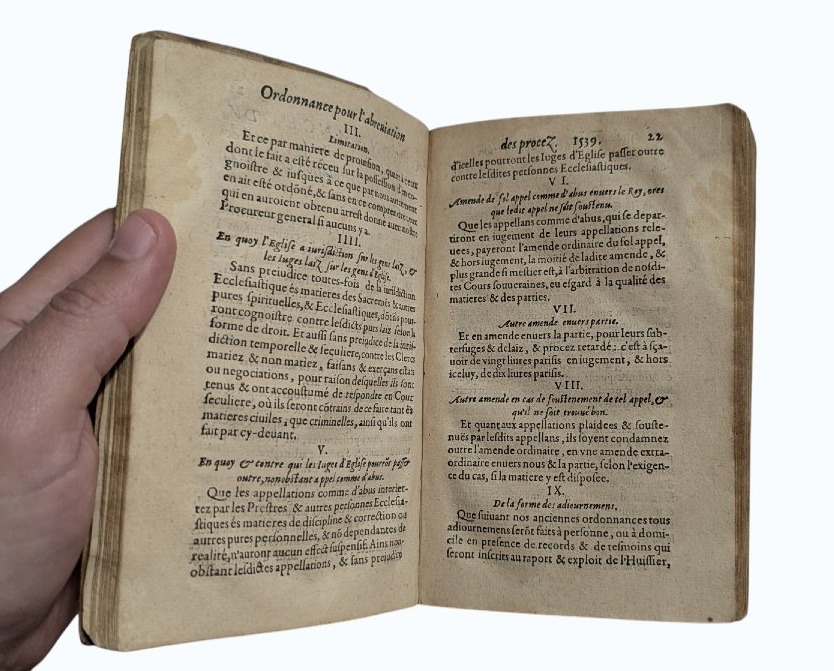 Ordonnance pour l'abreuiation
III.
Limitation.
Et ce par maniere de prouision, quant à ceux
dont le fait a esté receu sur la possession d'inco-
gnoistre & iusques à ce que par nous autrement
en ait esté ordōné, & sans en ce comprendre ceux
qui en auroient obtenu arrest donné auec nostre
Procureur general si aucuns y a.
IIII.
En quoy l'Eglise a iurisdiction sur les gens laiz, &
les Iuges laiz sur les gens d'Eglise.
Sans preiudice toutes-fois de la iurisdiction
Ecclesiastique és matieres des Sacremēs & autres
pures spirituelles, & Ecclesiastiques, dōt ils pour-
ront cognoistre contre lesdicts purs laiz selon la
forme de droit. Et aussi sans preiudice de la iuris-
diction temporelle & seculiere, contre les Clercs
mariez & non mariez, faisans & exerçans estats
ou negociations, pour raison desquelles ils sont
tenus & ont accoustumé de respondre en Cour
seculiere, où ils seront cōtrains de ce faire tant és
matieres ciuiles, que criminelles, ainsi qu'ils ont
fait par cy-deuant.
V.
En quoy & contre qui les Iuges d'Eglise pourrōt passer
outre, nonobstant appel comme d'abus.
Que les appellations comme d'abus interiet-
tez par les Prestres & autres personnes Ecclesia-
stiques és matieres de discipline & correction ou
autres pures personnelles, & nō dependantes de
realité, n'auront aucun effect suspensif. Ains non-
obstant lesdictes appellations, & sans preiudice
des procez. 1539. 22
d'icelles pourront les Iuges d'Eglise passer outre
contre lesdites personnes Ecclesiastiques.
VI.
Amende de fol appel comme d'abus enuers le Roy, ores
que ledit appel ne soit soustenu.
Que les appellans comme d'abus, qui se depar-
tiront en iugement de leurs appellations rele-
uees, payeront l'amende ordinaire du fol appel,
& hors iugement, la moitié de ladite amende, &
plus grande si mestier est, à l'arbitration de nosdi-
tes Cours souueraines, eu esgard à la qualité des
matieres & des parties.
VII.
Autre amende enuers partie.
Et en amende enuers la partie, pour leurs sub-
terfuges & delaiz, & procez retardé: c'est à sça-
uoir de vingt liures parisis en iugement, & hors
iceluy, de dix liures parisis.
VIII.
Autre amende en cas de soustenement de tel appel, &
qu'il ne soit trouué bon.
Et quant aux appellations plaidees & souste-
nuēs par lesdits appellans, ils soyent condamnez
outre l'amende ordinaire, en vne amende extra-
ordinaire enuers nous & la partie, selon l'exigen-
ce du cas, si la matiere y est disposee.
IX.
De la forme des adiournement.
Que suiuant nos anciennes ordonnances tous
adiournemens serōt faits à personne, ou à domi-
cile en presence de records & de tesmoins qui
seront inscrits au raport & exploit de l'Huissier,